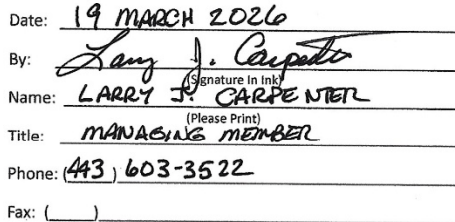 Date: 19 MARCH 2026
By: Larry J. Carpenter
(Signature In Ink)
Name: LARRY J. CARPENTER
(Please Print)
Title: MANAGING MEMBER
Phone: (443) 603-3522
Fax: (____)